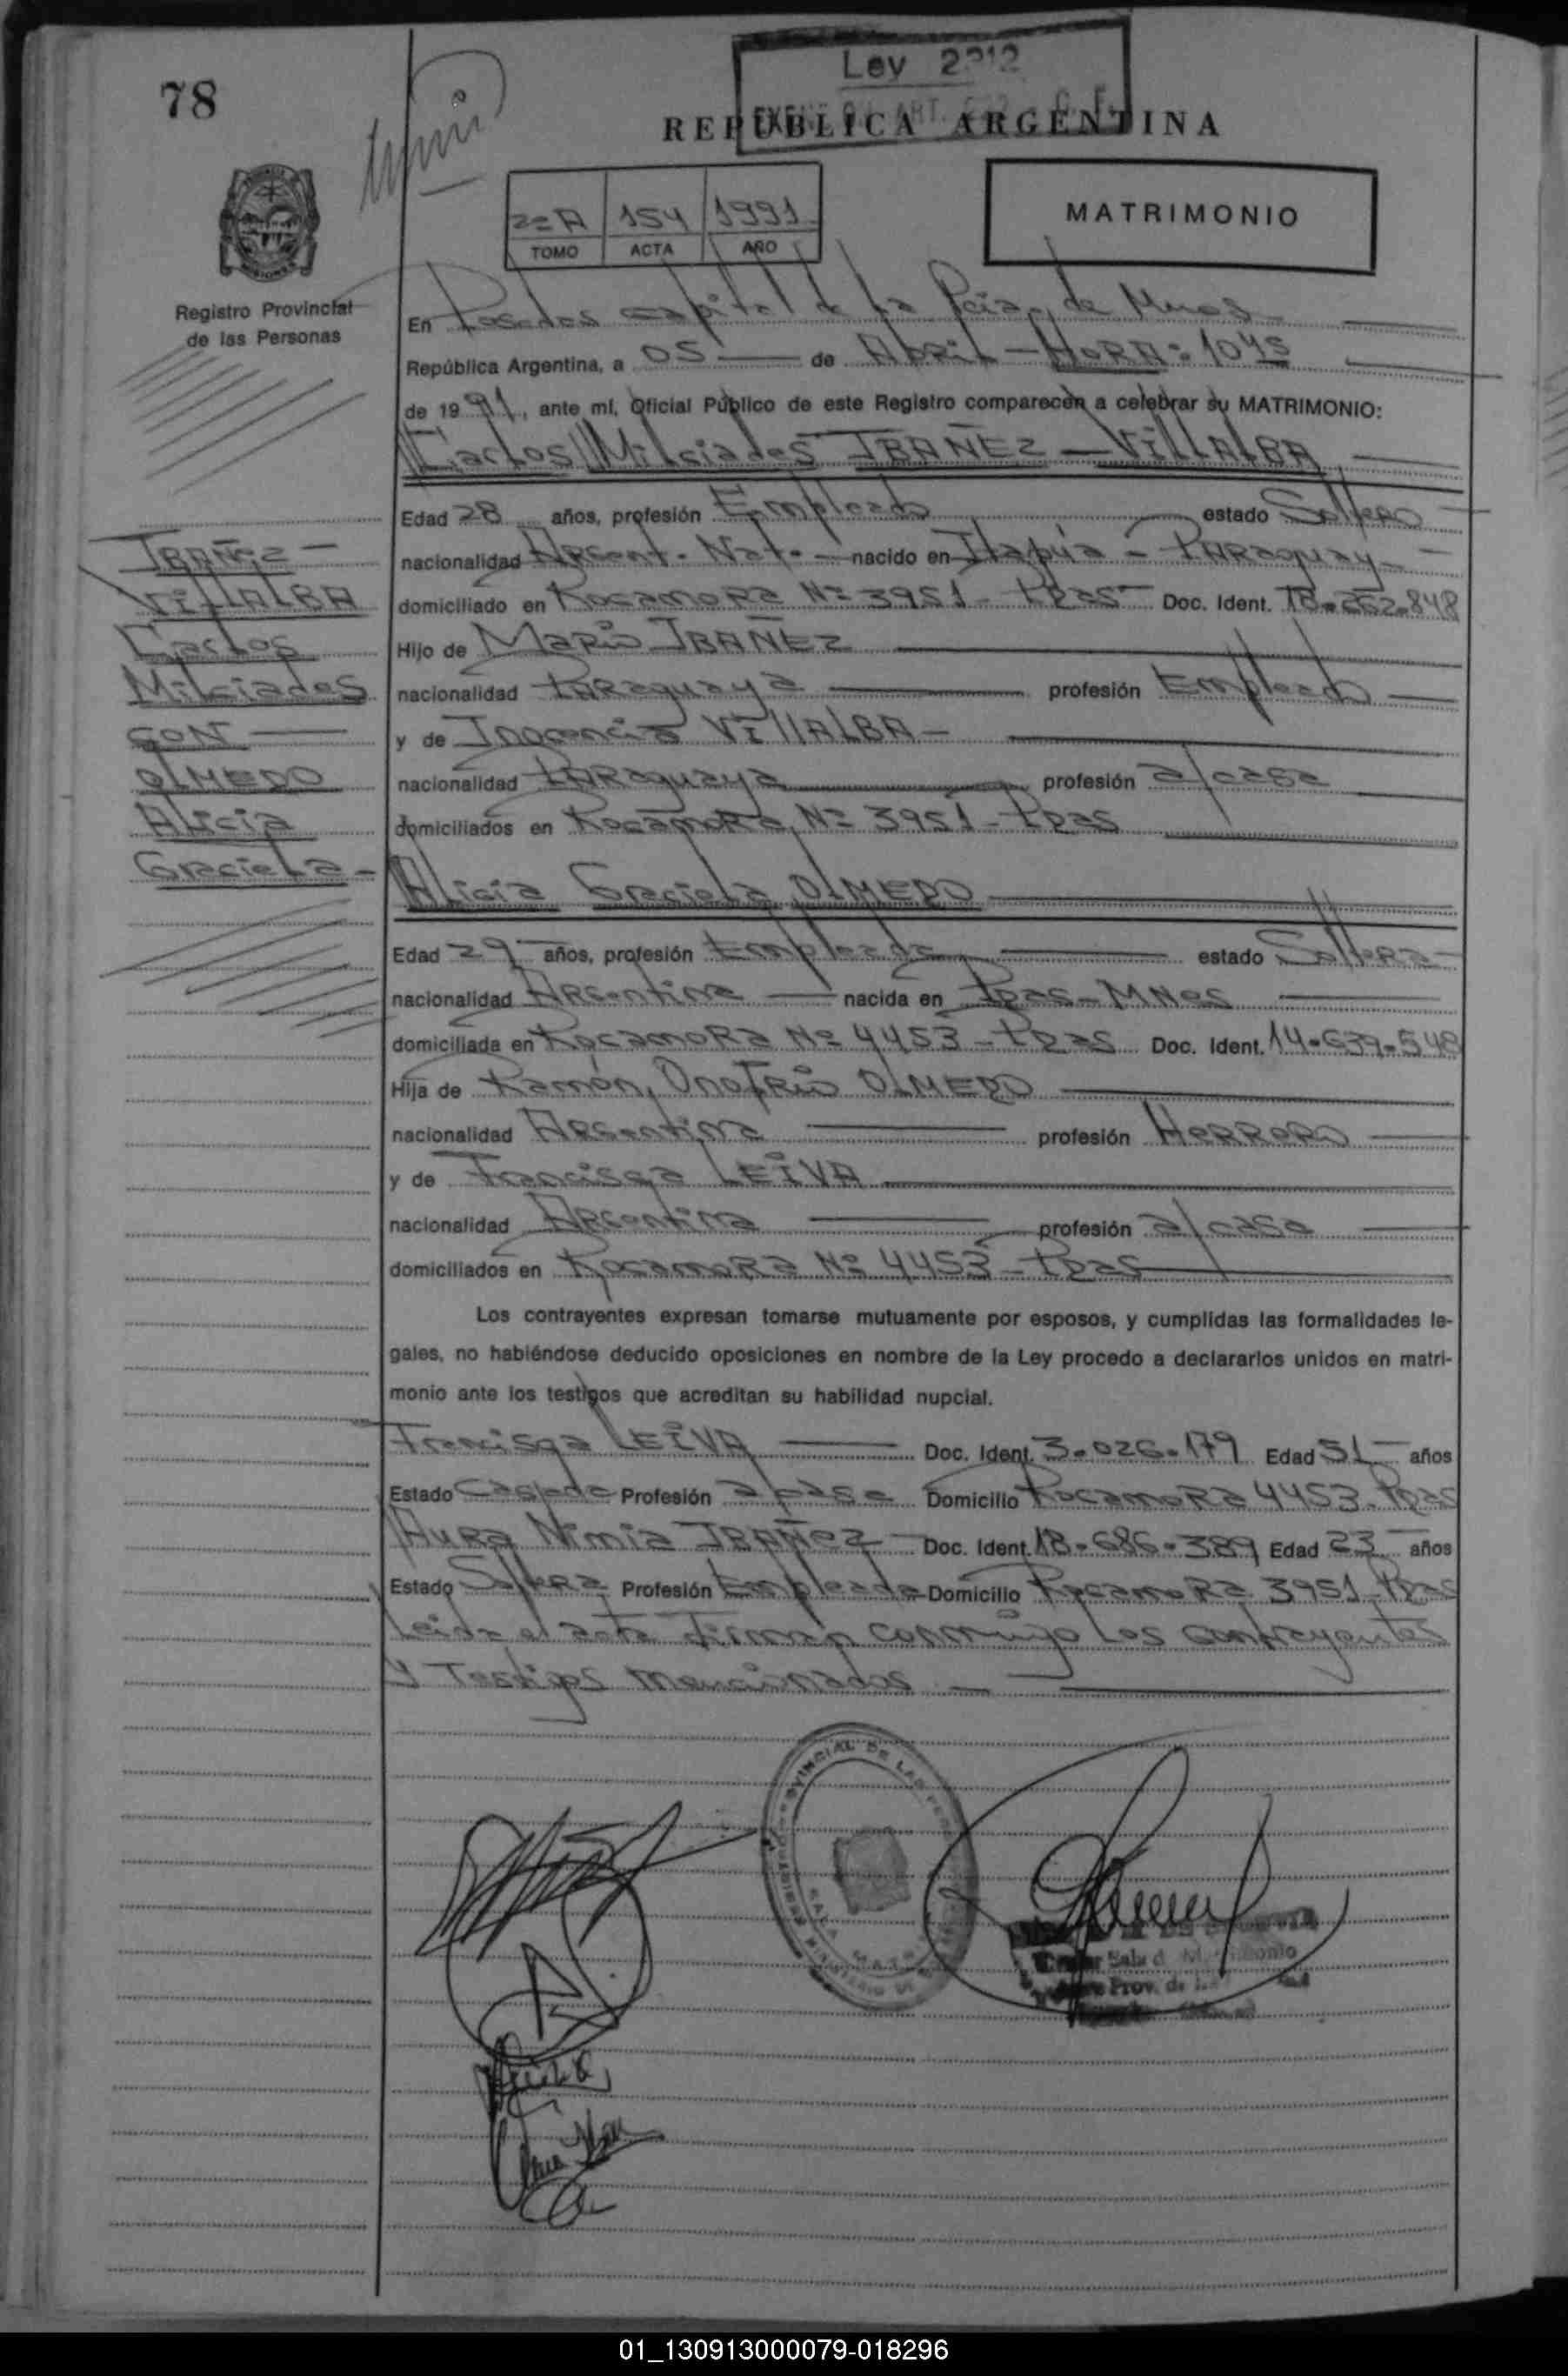 78
Ley 2212
REPUBLICA ARGENTINA
2º A 154 1991
TOMO ACTA AÑO
MATRIMONIO
Registro Provincial
de las Personas
En Posadas capital de la Pcia. de Mnes
República Argentina, a 05 de Abril - HORA: 1045
de 1991, ante mí, Oficial Público de este Registro comparecen a celebrar su MATRIMONIO:
Carlos Milciades IBAÑEZ - VILLALBA
Edad 28 años, profesión Empleado estado Soltero
nacionalidad Argent. Nat. nacido en Itapúa - Paraguay
domiciliado en Rocamora Nº 3951 - Pdas Doc. Ident. 18.262.848
Hijo de Mario IBAÑEZ
nacionalidad Paraguaya profesión Empleado
y de Inocencia VILLALBA
nacionalidad Paraguaya profesión a/casa
domiciliados en Rocamora Nº 3951 - Pdas
IBAÑEZ -
VILLALBA
Carlos
Milciades
CON
OLMEDO
Alicia
Graciela -
Alicia Graciela OLMEDO
Edad 29 años, profesión Empleada estado Soltera
nacionalidad Argentina nacida en Pdas - Mnes
domiciliada en Rocamora Nº 4453 - Pdas Doc. Ident. 14.639.548
Hija de Ramón Onofrio OLMEDO
nacionalidad Argentina profesión Herrero
y de Francisca LEIVA
nacionalidad Argentina profesión a/casa
domiciliados en Rocamora Nº 4453 - Pdas
Los contrayentes expresan tomarse mutuamente por esposos, y cumplidas las formalidades le-
gales, no habiéndose deducido oposiciones en nombre de la Ley procedo a declararlos unidos en matri-
monio ante los testigos que acreditan su habilidad nupcial.
Francisca LEIVA Doc. Ident. 3.026.179 Edad 51 años
Estado Casada Profesión a/casa Domicilio Rocamora 4453 - Pdas
Aura Nimia IBAÑEZ Doc. Ident. 18.686.389 Edad 23 años
Estado Soltera Profesión Empleada Domicilio Rocamora 3951 - Pdas
Leida el acta firman conmigo los contrayentes
y Testigos mencionados
01_130913000079-018296